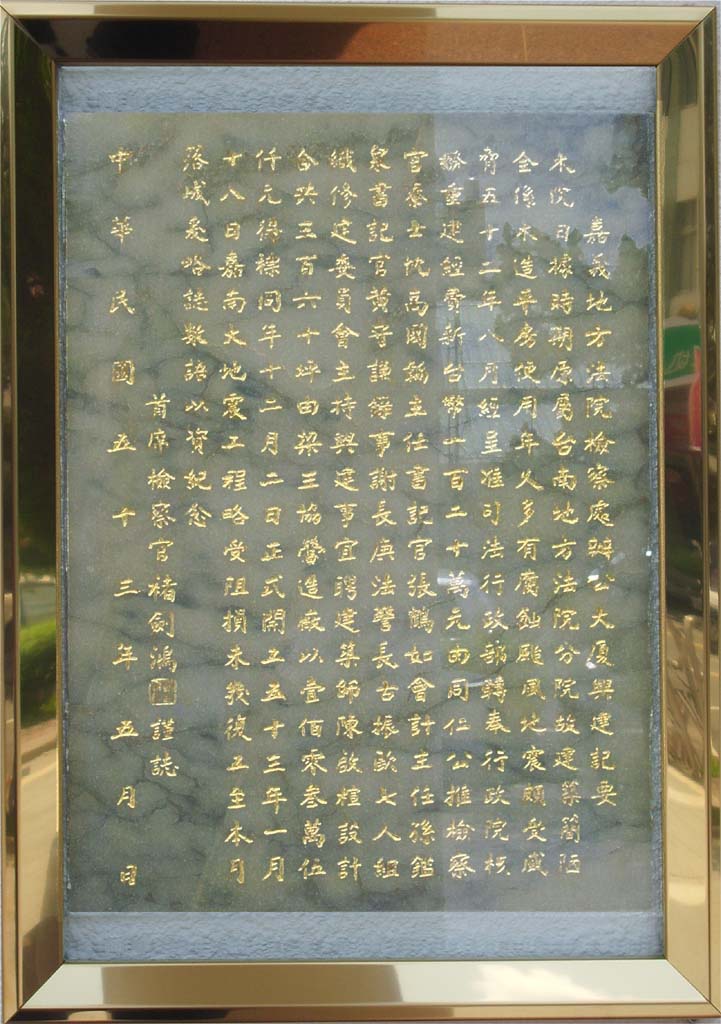 嘉義地方法院檢察處辦公大廈興建記要
本院日據時期原屬台南地方法院分院故建築簡陋
全係木造平房使用年久多有腐蝕颱風地震頗受威
脅五十二年八月經呈准司法行政部轉奉行政院核
撥重建經費新台幣一百二十萬元由同仁公推檢察
官秦士忱高國錦主任書記官張鶴如會計主任孫鑑
泉書記官黃守謙錄事謝長庚法警長古振歐七人組
織修建委員會主持興建事宜聘建築師陳啟楦設計
合共三百六十坪由梁三協營造廠以壹佰零叁萬伍
仟元得標同年十二月二日正式開工五十三年一月
十八日嘉南大地震工程略受阻損未幾復工至本月
落成爰略誌數語以資紀念
首席檢察官楮劍鴻 謹誌
中華民國五十三年五月 日